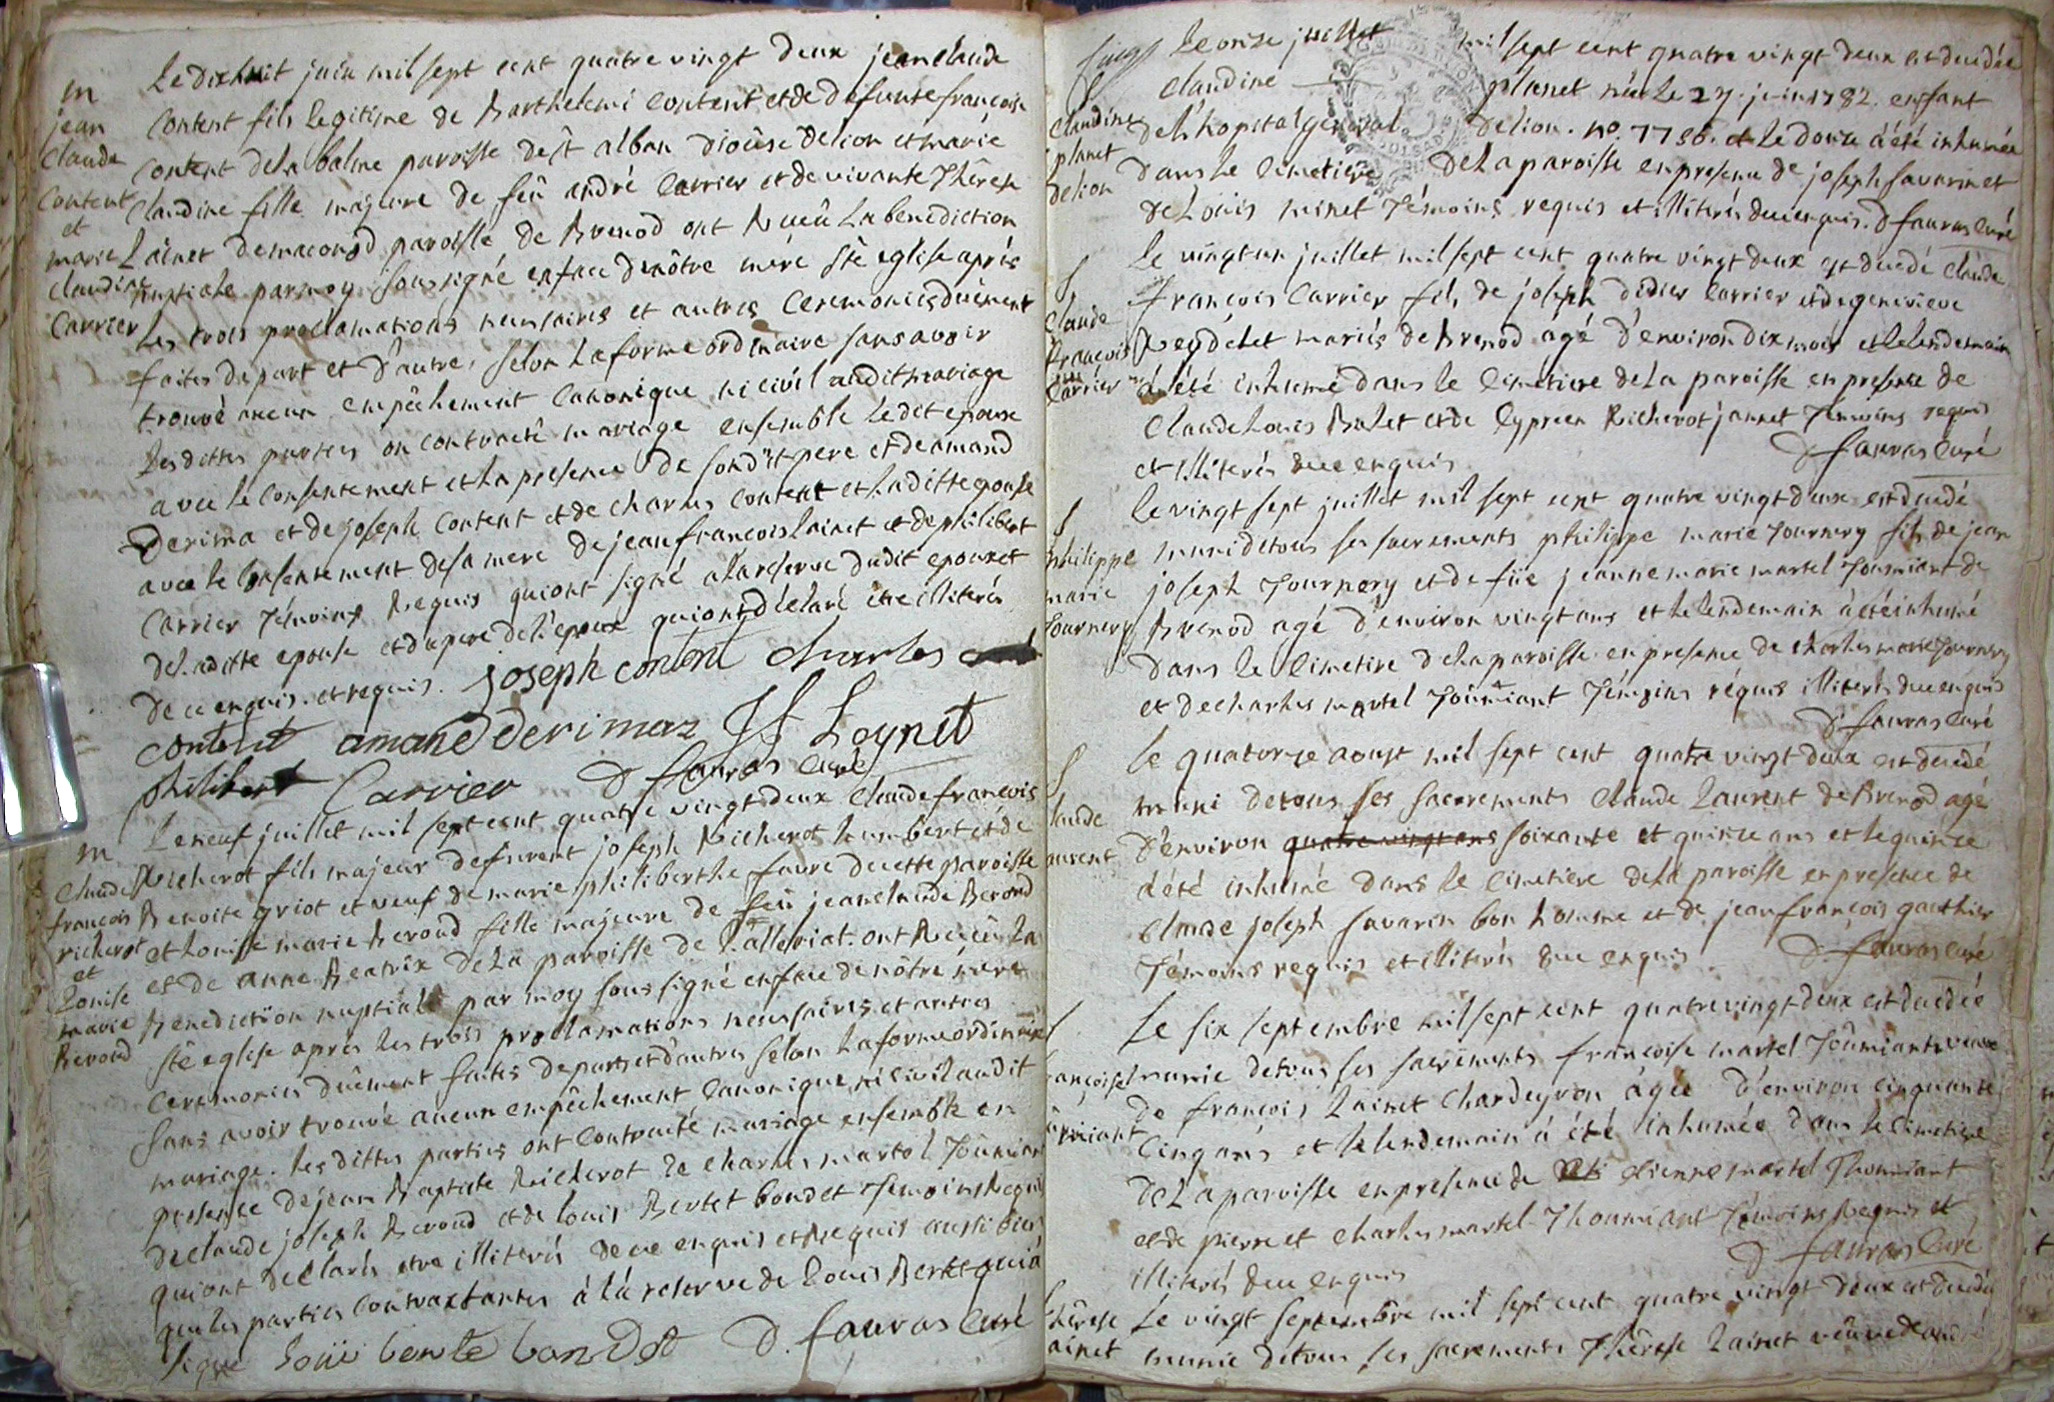 m
jean
claude
content
et
marie
claudine
Carrier
Le dixhuit juin mil sept cent quatre vingt deux jean claude
Content fils legitime de Barthelemi Content et de defunte françoise
Content de la balme paroisse de st alban diocêse de lion et marie
claudine fille majeure de feû andré Carrier et de vivante Thérèse
Lainet de maconod paroisse de Brenod ont Receû la benediction
nuptiale par moy soussigné en face de nôtre mère Ste eglise après
les trois proclamations necessaires et autres Ceremonies duement
faites de part et d'autre, selon la forme ordinaire sans avoir
trouvé aucun empêchement Canonique ni civil audit mariage
les dittes parties on contracté mariage ensemble ledit epoux
avec le Consentement et la presence de sondit pere et de amand
Derima et de joseph Content et de charles Content et laditte epouse
avec le Consentement de sa mere de jean francois lainet et de philibert
Carrier Témoins Requis qui ont signé à la reserve dudit epoux et
de laditte epouse et du pere de l'epoux qui ont déclaré etre illiterés
de ce enquis et requis. joseph content charles
content amand Derimaz J f Leynet
philibert Carrier D fauras curé
m
Claude
françois
richerot
et
Louise
marie
Beroud
Le neuf juillet mil sept cent quatre vingt deux Claude françois
Richerot fils majeur de furent joseph Richerot humbert et de
Benoite griot et veuf de marie philiberthe favre de cette paroisse
et Louise marie Beroud fille majeure de feû jean claude Beroud
et de anne Beatrix de la paroisse de l'alleriat. ont Receû la
Benediction nuptiale par moy sous signé en face de nôtre mere
Ste eglise après les trois proclamations necessaires et autres
Ceremonies duêment faites de part et d'autres selon la forme ordinaire
sans avoir trouvé aucun empêchement Canonique ni civil audit
mariage. les dittes parties ont Contracté mariage ensemble en
presence de jean Baptiste Richerot de Charles martel Toumiant
de claude joseph Beroud et de louis Bertet boudet Temoins Requis
qui ont declarés etre illiterés de ce enquis et Requis aussi bien
que les parties Contractantes à la reserve de Louis Bertet qui a
signé D. fauras Curé
claudine
planet
de lion
Le onze juillet mil sept cent quatre vingt deux est decedée
Claudine planet née le 27 juin 1782. enfant
de L'hopital general de lion. no. 7786. et le douze à été inhumée
dans le cimetiere de la paroisse en presence de joseph savarin et
de Louis minet Témoins requis et illiterés de ce enquis. D fauras Curé
S
Claude
François
Carrier
le vingt un juillet mil sept cent quatre vingt deux est decedé Claude
François Carrier fils de joseph didier Carrier et de genevieve
Reydelet mariés de Brenod agé d'environ dix mois et le lendemain
à été inhumé dans le Cimetiere de la paroisse en presence de
Claude Louis Bulet et de Cyprien Richerot jannet Temoins requis
et illiterés de ce enquis D fauras Curé
S
philippe
marie
Tournery
le vingt sept juillet mil sept cent quatre vingt deux est decedé
muni de tous ses sacrements philippe marie Tournery fils de jean
joseph Tournery et de fûe jeanne marie martel Toumiant de
Brenod agé d'environ vingt ans et le lendemain à été inhumé
dans le Cimetire de la paroisse en presence de charles marie Tournery
et de charles martel Toumiant Témoins réquis illiterés de ce enquis
D fauras Curé
S
laude
aurent
le quatorze aoust mil sept cent quatre vingt deux est decedé
muni de tous ses sacrements Claude Laurent de Brenod agé
d'environ quatre vingt ans soixante et quinze ans et le quinze
à été inhumé dans le Cimetiere de la paroisse en presence de
Claude joseph savarin bon homme et de jean françois gauthier
Témoins requis et illiterés de ce enquis D. fauras Curé
S
ançoise
Le six septembre mil sept cent quatre vingt deux est decedée
munie de tous ses sacrements Françoise martel Toumiant veuve
de François Lainet Chardeyron âgée d'environ cinquante
Cinq ans et le lendemain à été inhumée dans le Cimetiere
de La paroisse en presence de etienne martel Thoumiant
et de pierre et Charles martel Thoumiant Témoins Requis et
illiterés de ce enquis D fauras Curé
Therese
ainet
Le vingt septembre mil sept cent quatre vingt deux est decedée
munie de tous ses sacrements Thérèse Lainet veuve de andré